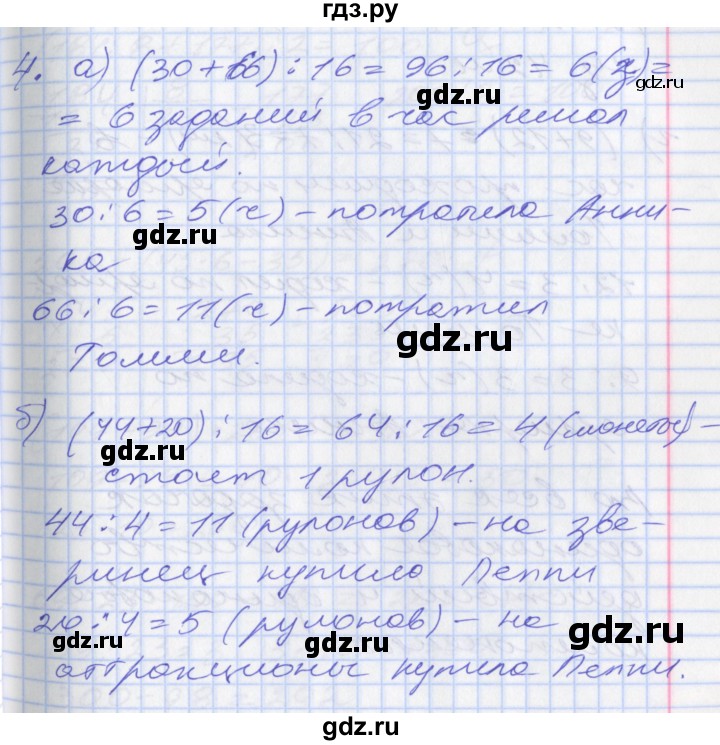 гдз.ру
4. а) (30+66):16=96:16=6(з)=
= 6 заданий в час решал
каждый.
30:6=5(ч)-потратила Анни-
ка
66:6=11(ч)-потратил
Томми.
б) (44+20):16=64:16=4(монеты)-
стоит 1 рулон.
44:4=11(рулонов)-на зве-
ринец купила Пеппи
20:4=5(рулонов)-на
аттракционы купила Пеппи.
gdz.ru
gdz.ru
gdz.ru
gdz.ru
gdz.ru
gdz.ru
gdz.ru
gdz.ru
gdz.ru
gdz.ru